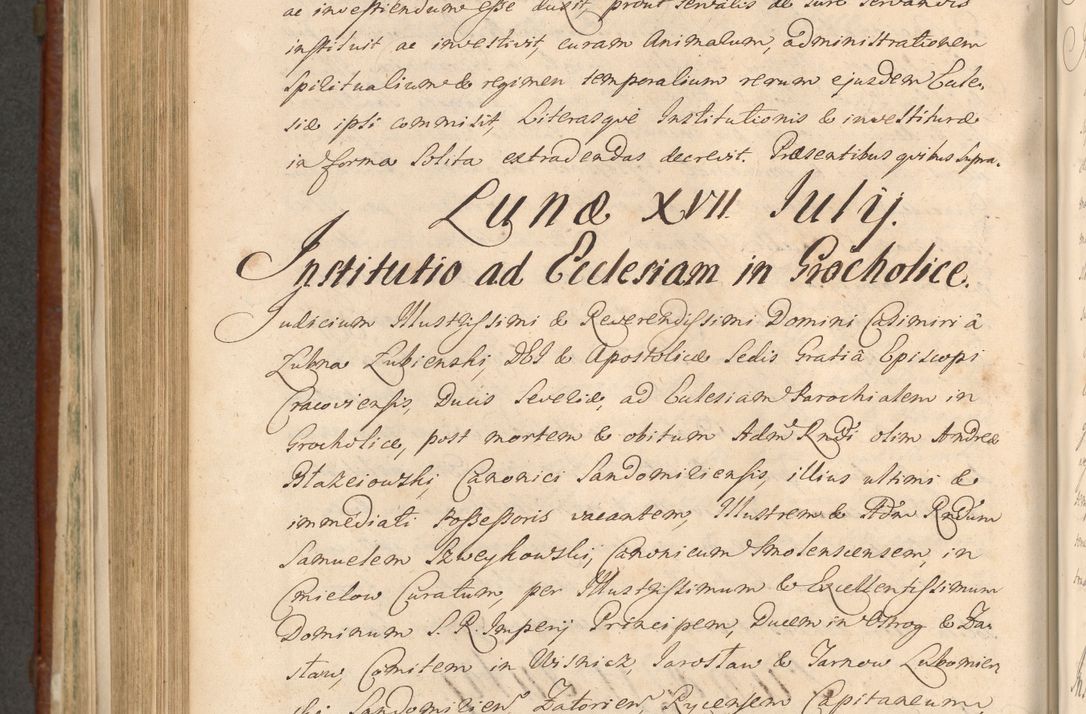 ac investiendum esse duxit, prout servatis de Jure servandis
instituit ac investivit, curam Animarum, administrationem
Spiritualium & regimen temporalium rerum ejusdem Eccle,
siæ ipsi commisit, Literasque Institutionis & investituræ
in forma Solita extradendas decrevit. Præsentibus quibus supra.
Lunæ XVII. Iulij.
Institutio ad Ecclesiam in Grocholice.
Iudicium Illustrissimi & Reverendissimi Domini Casimiri à
Lubna Lubienski, DEI & Apostolicæ Sedis Gratiâ Episcopi
Cracoviensis, Ducis Severiæ, ad Ecclesiam Parochialem in
Grocholice, post mortem & obitum Admˢ Rndi olim Andreæ
Błażeiowski, Canonici Sandomiriensis, illius ultimi &
immediati Possessoris vacantem, Illustrem & Adm Rndum
Samuelem Szweykowski, Canonicum Smolenscensem, in
Cmielow Curatum, per Illustrissimum & Excellentissimum
Dominum S. R. Imperij Principem, Ducem in Ostrog & Za,
sław, Comitem in Wisnicz, Jarosław & Tarnow Lubomier,
ski Sandomirien Zatorien, Rycensem Capitaneum,